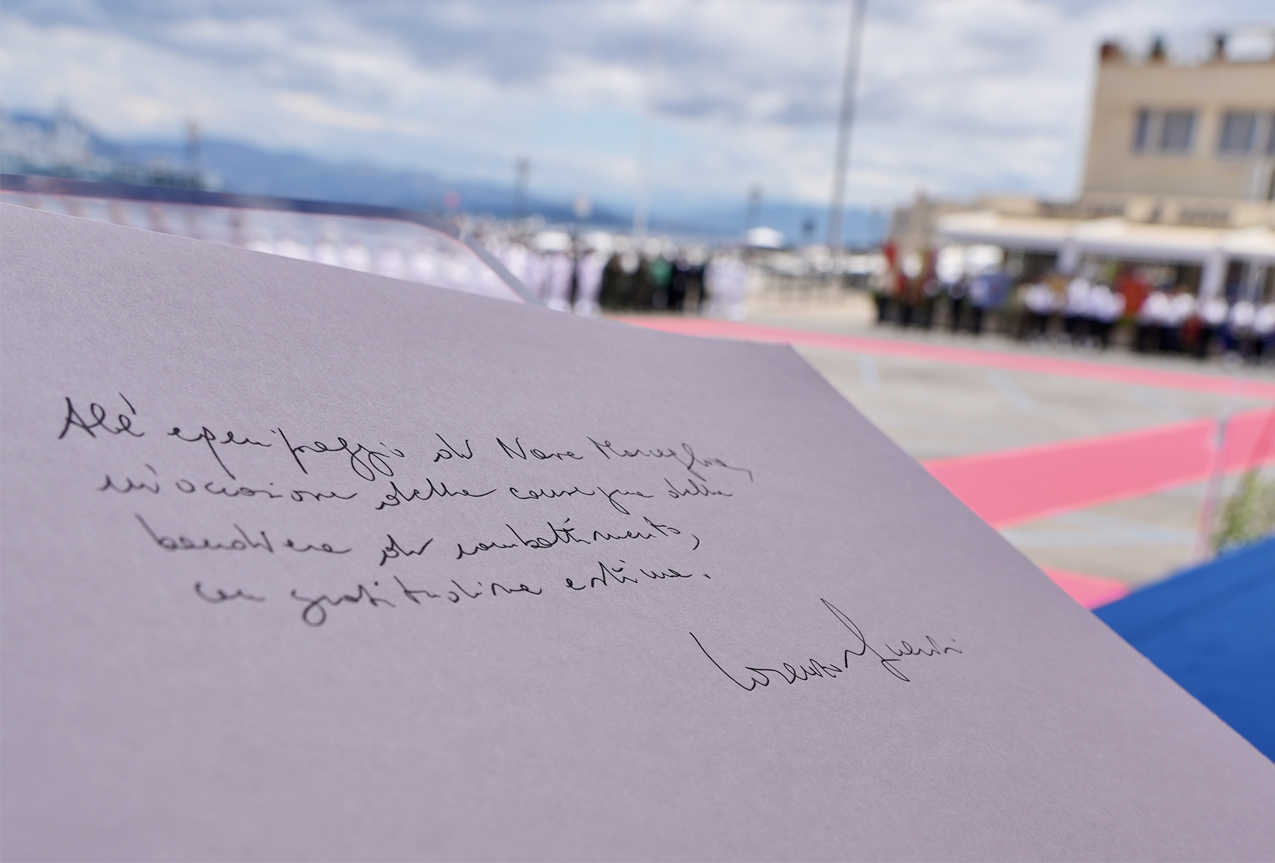 All'equipaggio di Nave Marceglia,
in occasione della consegna della
bandiera di combattimento,
con gratitudine e stima.
Lorenzo Guerini